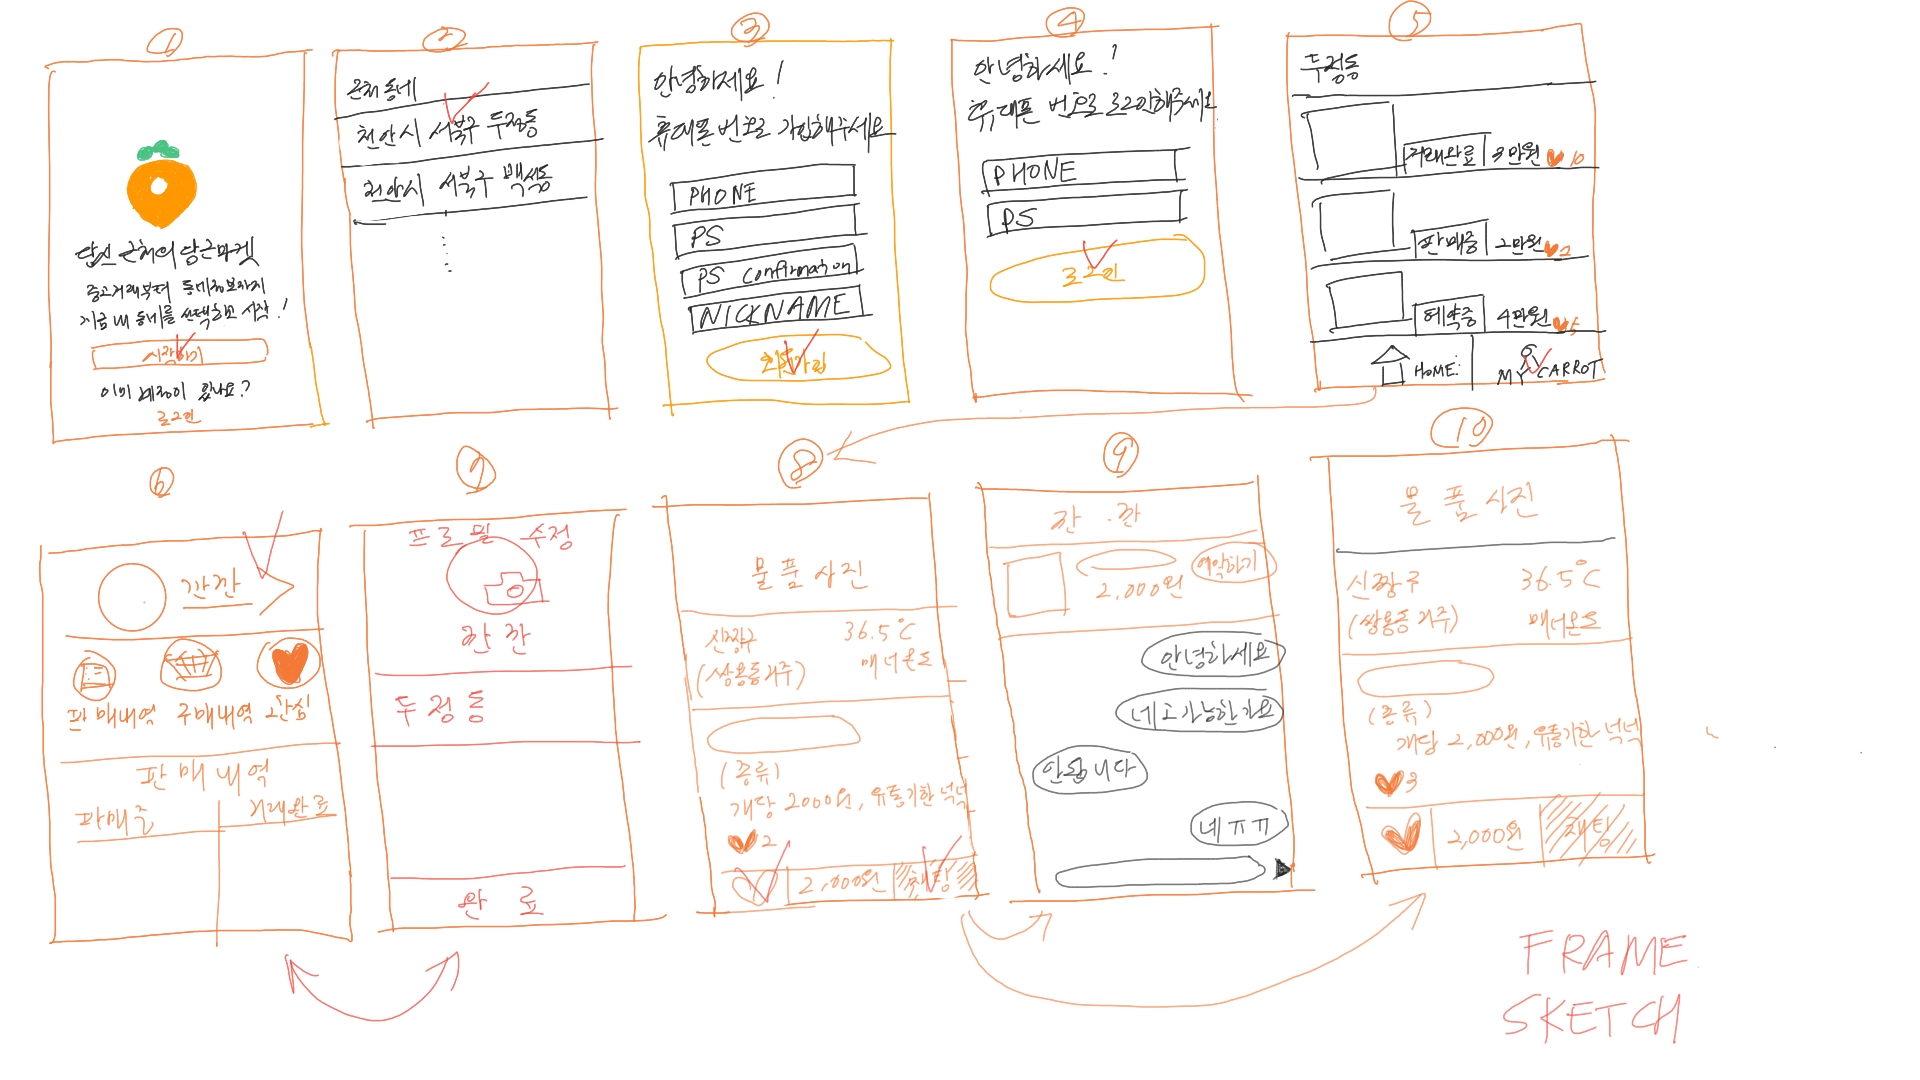 1
당신 근처의 당근마켓
중고거래부터 동네정보까지
지금 내 동네를 선택하고 시작!
시작하기
이미 계정이 있나요?
로그인
2
근처 동네
천안시 서북구 두정동
천안시 서북구 백석동
3
안녕하세요!
휴대폰 번호로 가입해주세요
PHONE
PS
PS confirmation
NICKNAME
회원가입
4
안녕하세요!
휴대폰 번호로 로그인해주세요
PHONE
PS
로그인
5
두정동
거래완료 3만원 10
판매중 2만원 2
예약중 4만원 5
HOME:
MY CARROT
6
깐깐
판매내역 구매내역 관심
판매내역
판매중 거래완료
7
프로필 수정
깐깐
두정동
완료
8
물품사진
신짱구 36.5°C
(쌍용동거주) 매너온도
(종류)
개당 2000원, 유통기한 넉넉
2
2,000원 채팅
9
깐.깐
2,000원 예약하기
안녕하세요
네고가능한가요
안됩니다
네ㅠㅠ
10
물품사진
신짱구 36.5°C
(쌍용동거주) 매너온도
(종류)
개당 2,000원, 유통기한 넉넉
3
2,000원 채팅
FRAME
SKETCH